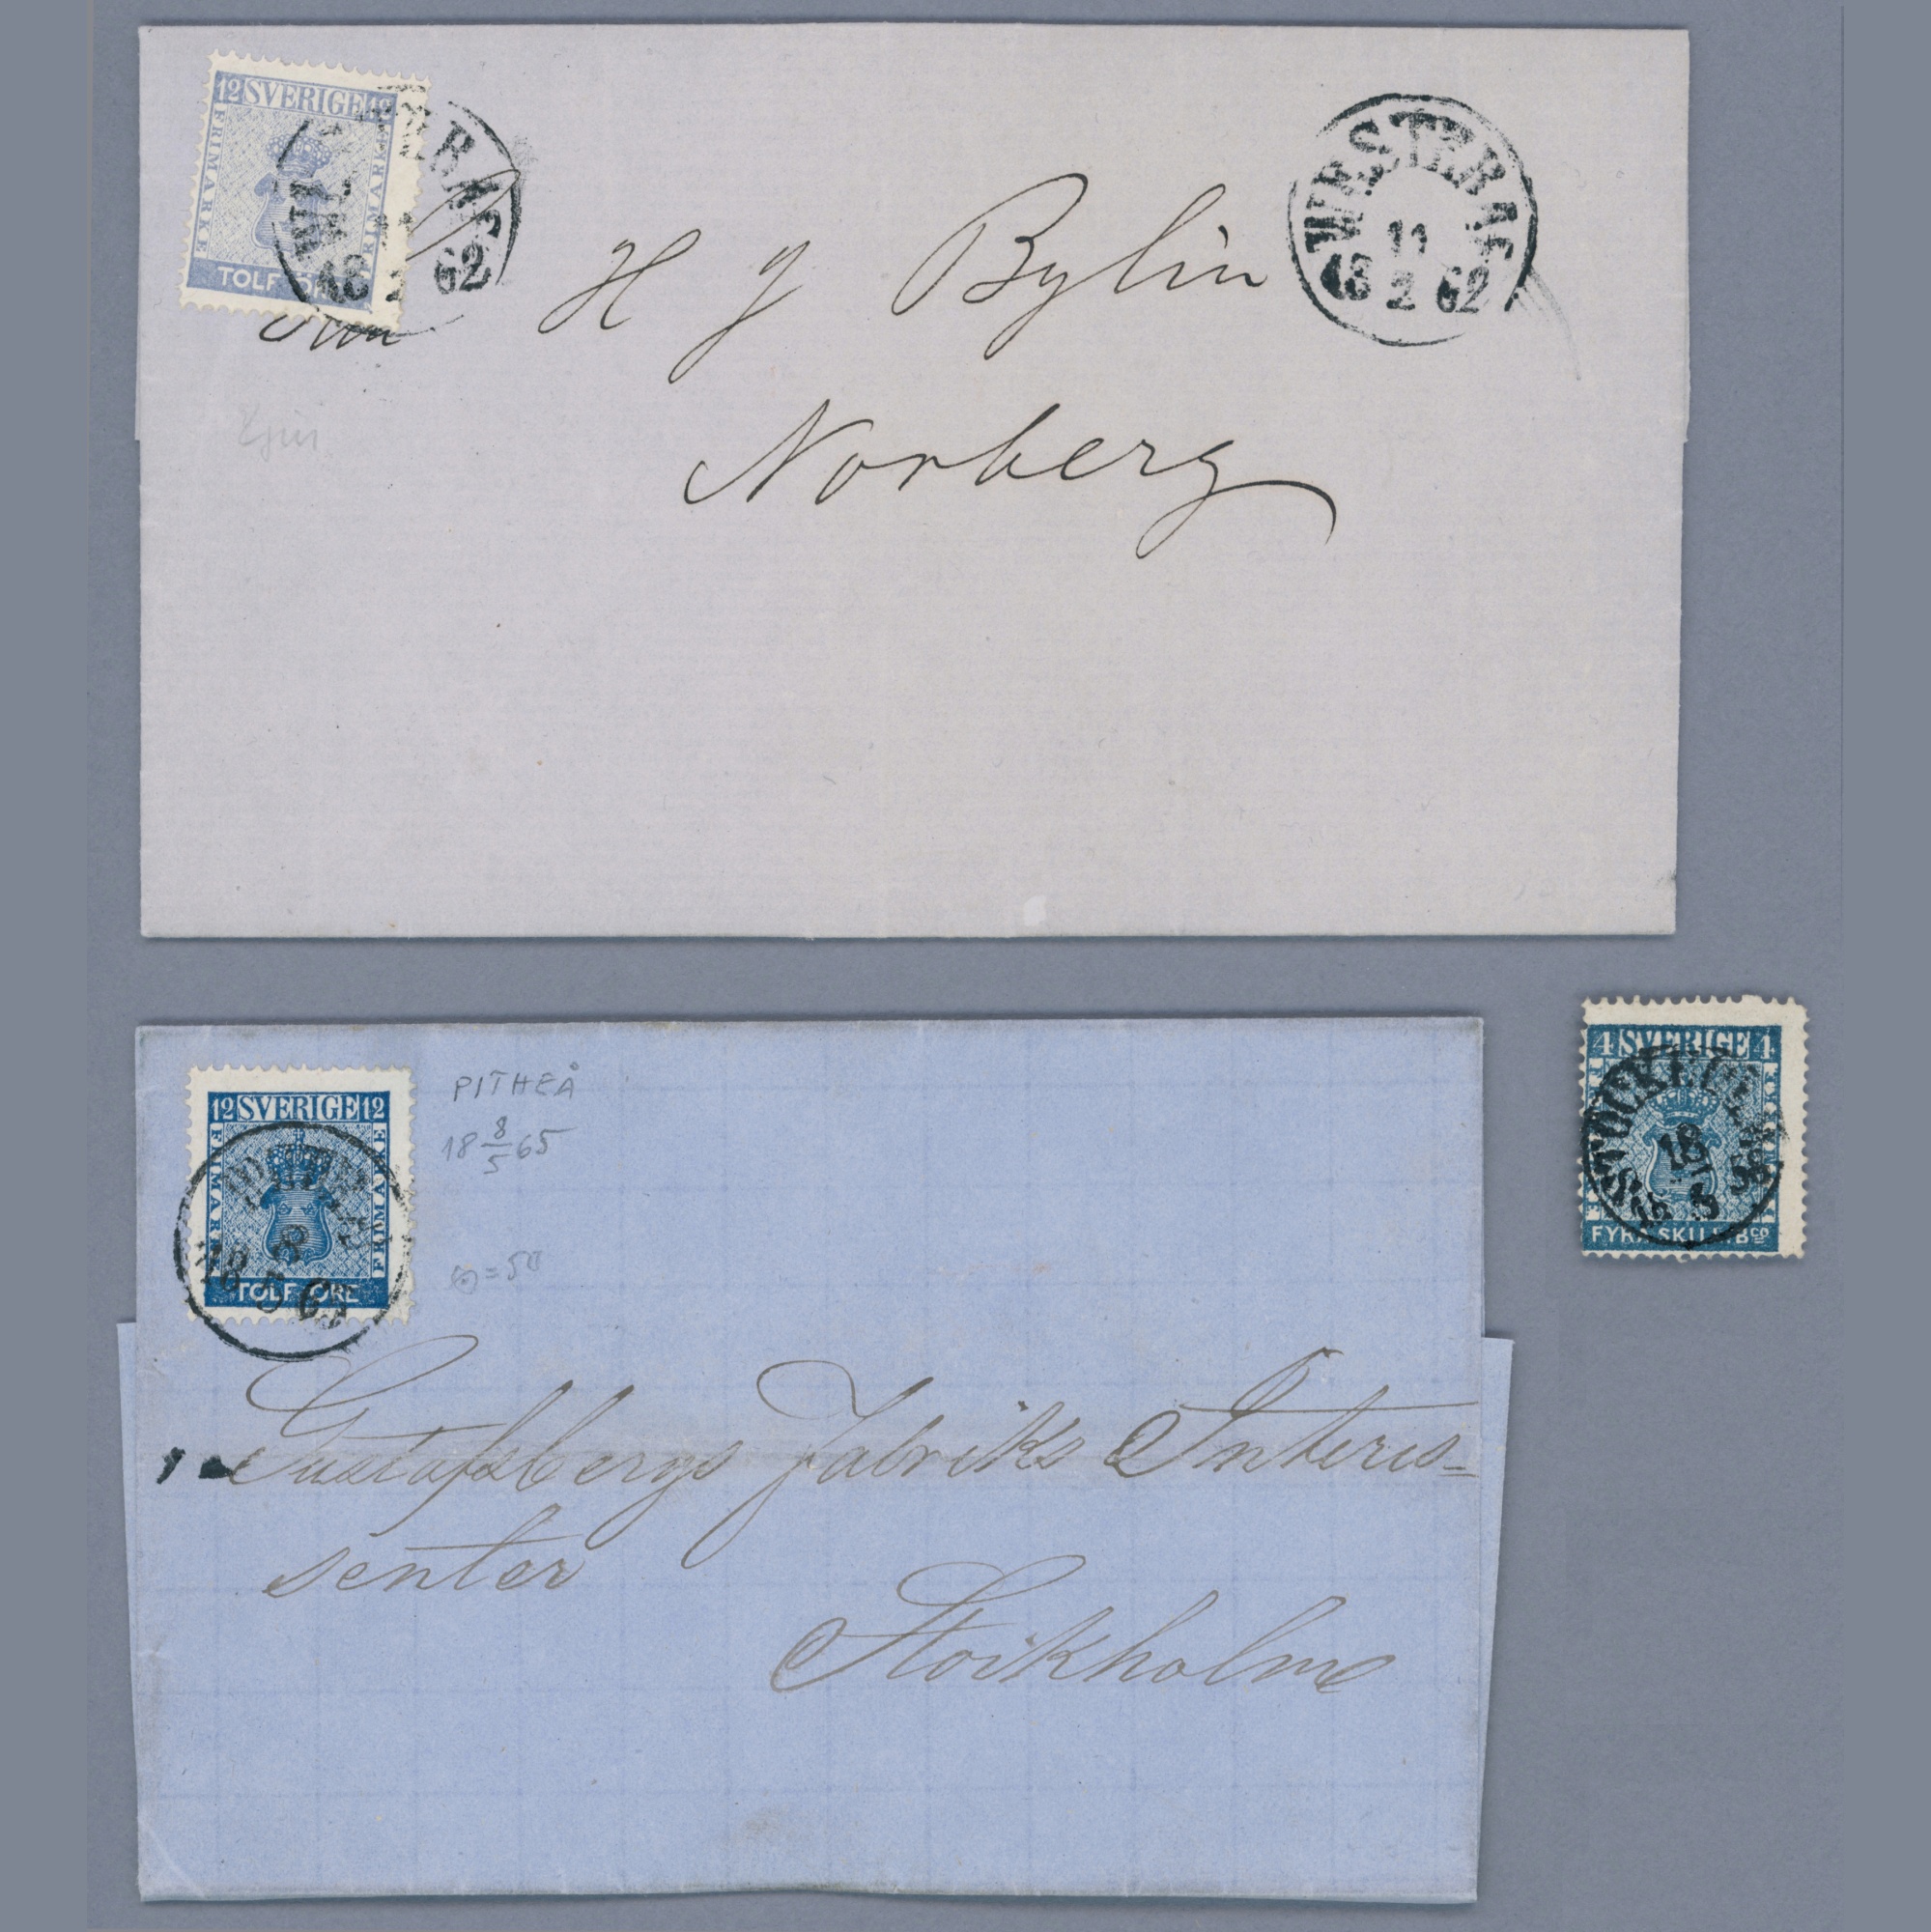 12 SVERIGE 12
FRIMÄRKE
FRIMÄRKE
TOLF ÖRE
WESTERÅS
11
18 2 62
WESTERÅS
11
18 2 62
H J Bylin
Norberg
12 SVERIGE 12
FRIMÄRKE
FRIMÄRKE
TOLF ÖRE
8
18 5 65
PITHEÅ
18 8/5 65
Gustafsbergs Fabriks Interes-
senter
Stockholm
4 SVERIGE 4
FYRA SKILL. Bco
STOCKHOLM
18
18 5 58